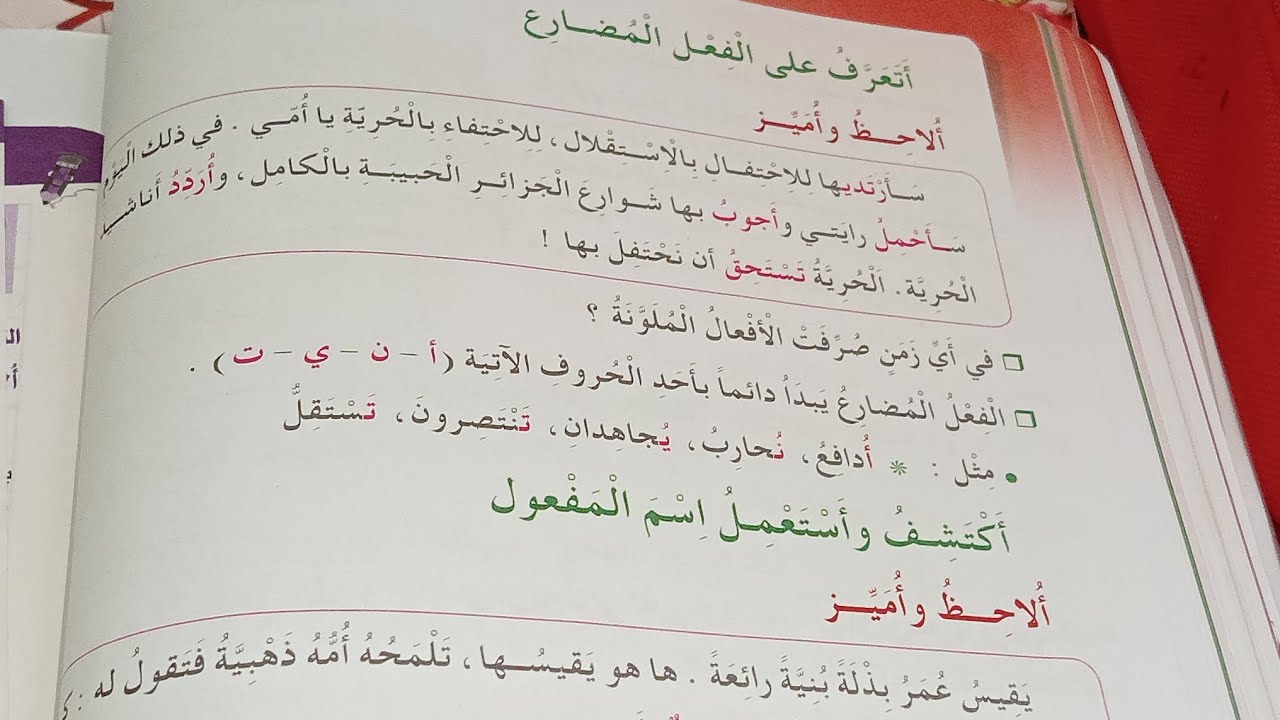 أَتَعَرَّفُ على الْفِعْل الْمُضارِع
أُلاحِظُ وأُمَيِّز
سَأَرْتَديها لِلاِحْتِفالِ بِالْاِسْتِقْلال، لِلاحْتِفاءِ بِالْحُريّةِ يا أُمّي . في ذلك الْيَوْم
سَأَحْمِلُ رايَتي وأَجوبُ بها شَوارِعَ الْجَزائرِ الْحَبيبَةِ بالْكامِل، وأُرَدِّدُ
الْحُريَّة. اَلْحُريَّةُ تَسْتَحِقُ أن نَحْتَفِلَ بها !
في أيِّ زَمَنٍ صُرِّفَتْ الْأفْعالُ الْمُلَوَّنَةُ ؟
الْفِعْلُ الْمُضارِعُ يَبدَأُ دائماً بأَحَدِ الْحُروفِ الآتِيَة (أ - ن - ي - ت) .
مِثْل : * أُدافِعُ، نُحارِبُ، يُجاهِدانِ، تَنْتَصِرونَ، تَسْتَقِلُّ
أَكْتَشِفُ وأَسْتَعْمِلُ اِسْمَ الْمَفْعول
أُلاحِظُ وأُمَيِّز
يَقيسُ عُمَرُ بِذْلَةً بُنِيَّةً رائِعَةً . ها هو يَقيسُها، تَلْمَحُهُ أُمُّهُ ذَهْبِيَّةُ فَتَقولُ له :